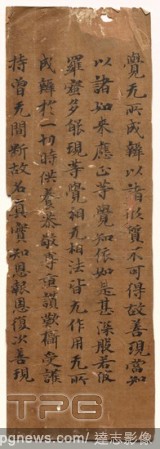 覺无所成辦以諸形質不可得故善現當知
以諸如來應正等覺知依如是甚深般若波
羅蜜多能現等覺相无相法皆无作用无所
成辦於一切時供養恭敬尊重讚歎攝受護
持曾无間斷故名真實知恩報恩復次善現
TPG
pgnews.com / 達志影像